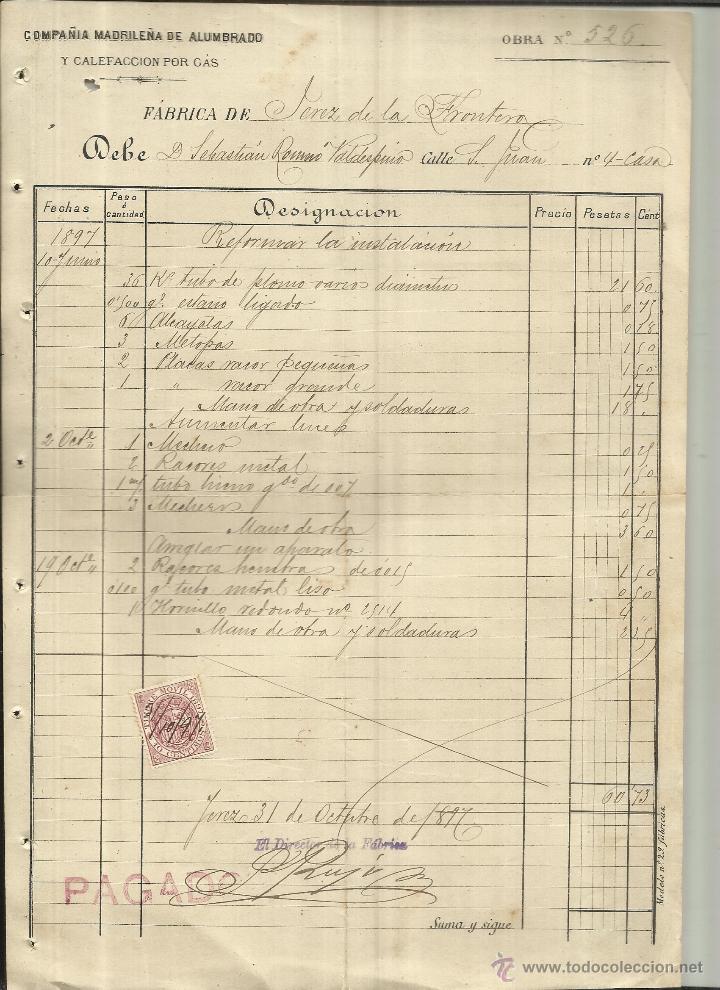 COMPAÑIA MADRILEÑA DE ALUMBRADO
Y CALEFACCION POR GAS
OBRA Nº 526
FÁBRICA DE Jerez de la Frontera
Debe D. Sebastián Romero Valdespino Calle S. Juan nº 4-casa
Fechas Peso ó cantidad Designacion Precio Pesetas Cént
1897 Reformar la instalación
10 Junio
36 Kº tubo de plomo varios diametros 21 60
0'500 gº. estano ligado 0 75
6 Alcayatas 0 78
3 Metopas 1 50
2 Placas racor pequeñas 1 50
1 " racor grande 1 75
Mano de obra y soldaduras 18 "
Aumentar luces
2 Octe 1 Mechero 0 25
2 Racores metal 1 50
1 m/ tubo hierro gdo de 007 1 "
3 Mecheros 0 75
Mano de obra 3 60
Arreglar un aparato
19 Octe 2 Racores hembra de 0015 1 50
0100 gº tubo metal liso 0 50
1 Hornillo redondo nº 2514 4 "
Mano de obra y soldaduras 2 25
TIMBRE MOVIL
10 CENTIMOS
/10/97
60'73
Jerez 31 de Octubre de 1897
El Director de la Fábrica
PAGADO
Suma y sigue
Modelo nº 29 fábricas
www.todocoleccion.net